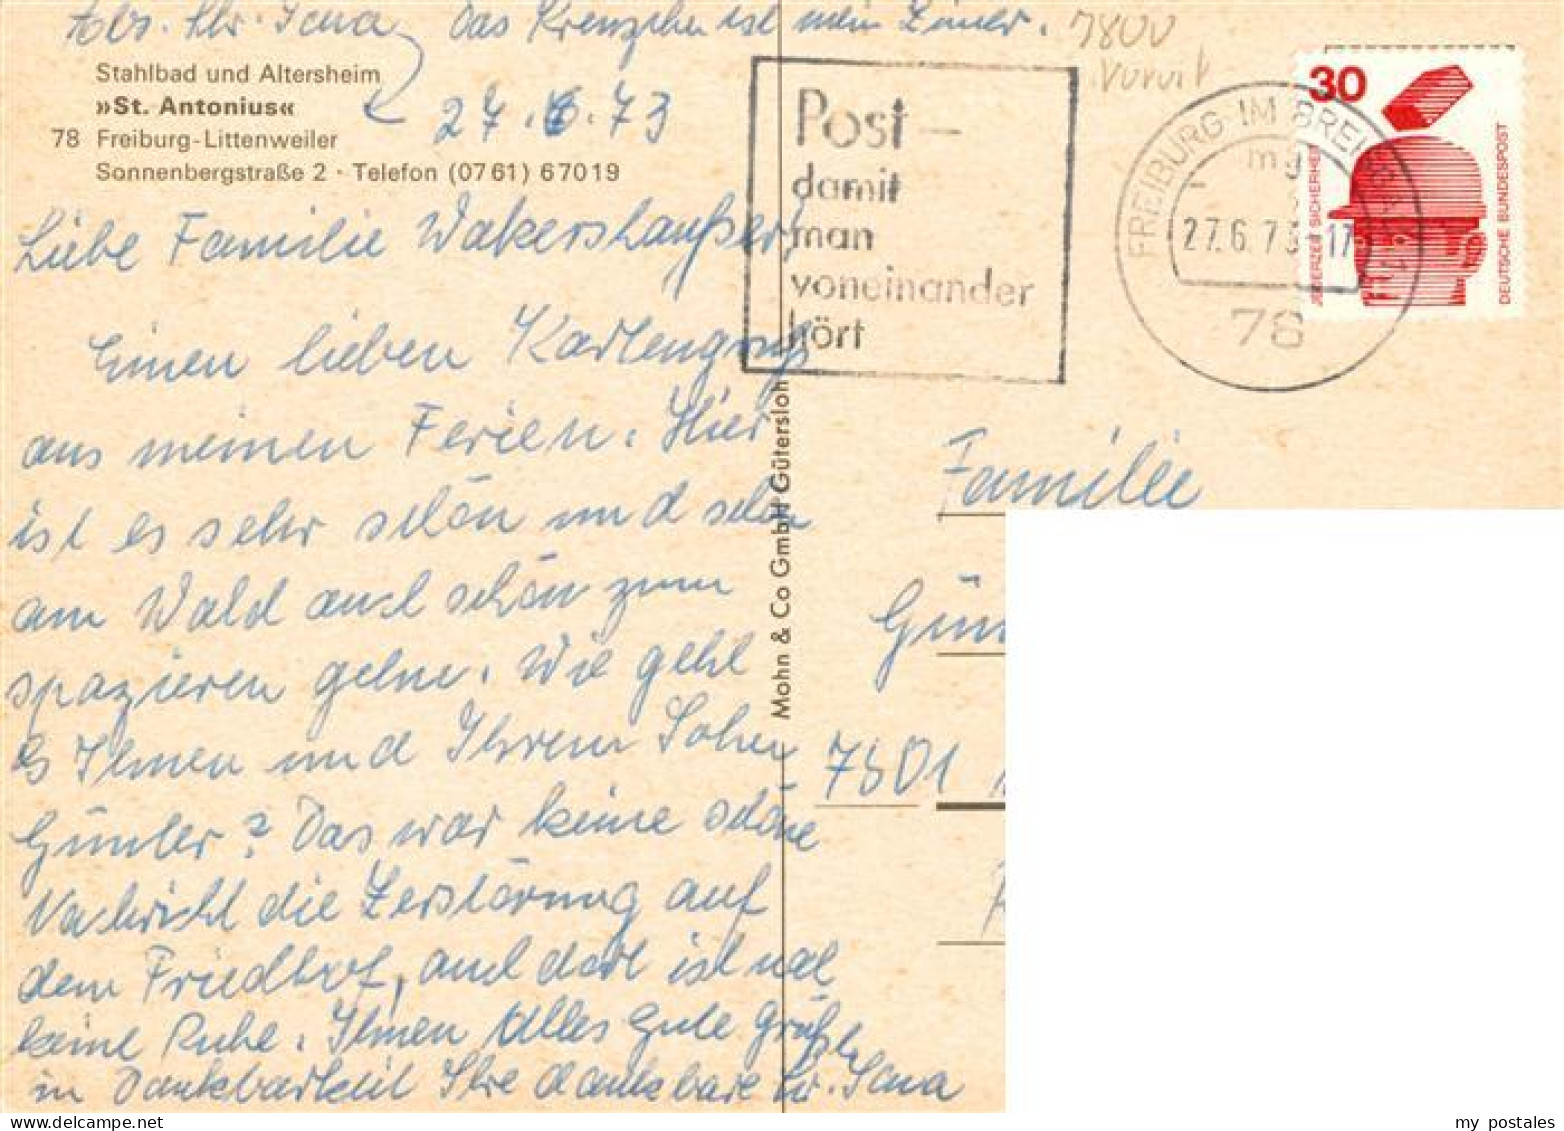 Abs. Schw. Jona, das Kreuzchen ist mein Zimmer.
7800
Stahlbad und Altersheim
»St. Antonius«
78 Freiburg-Littenweiler
Sonnenbergstraße 2 · Telefon (0761) 67019
27.6.73
Liebe Familie
Einen lieben Kartengruß
aus meinen Ferien. Hier
ist es sehr schön und schön
am Wald auch schön zum
spazieren gehn. Wie geht
es Ihnen und Ihrem Sohn
Günter? Das war keine schöne
Nachricht die Zerstörung auf
dem Friedhof, auch dort ist
keine Ruhe. Ihnen Alles gute Grüße
in Dankbarkeit Ihre dankbare
Mohn & Co GmbH Gütersloh
Post –
damit
man
voneinander
hört
FREIBURG IM BREISGAU 1
mg
27.6.73-17
78
30
JEDERZEIT SICHERHEIT
DEUTSCHE BUNDESPOST
Familie
Gün
7801
my postales